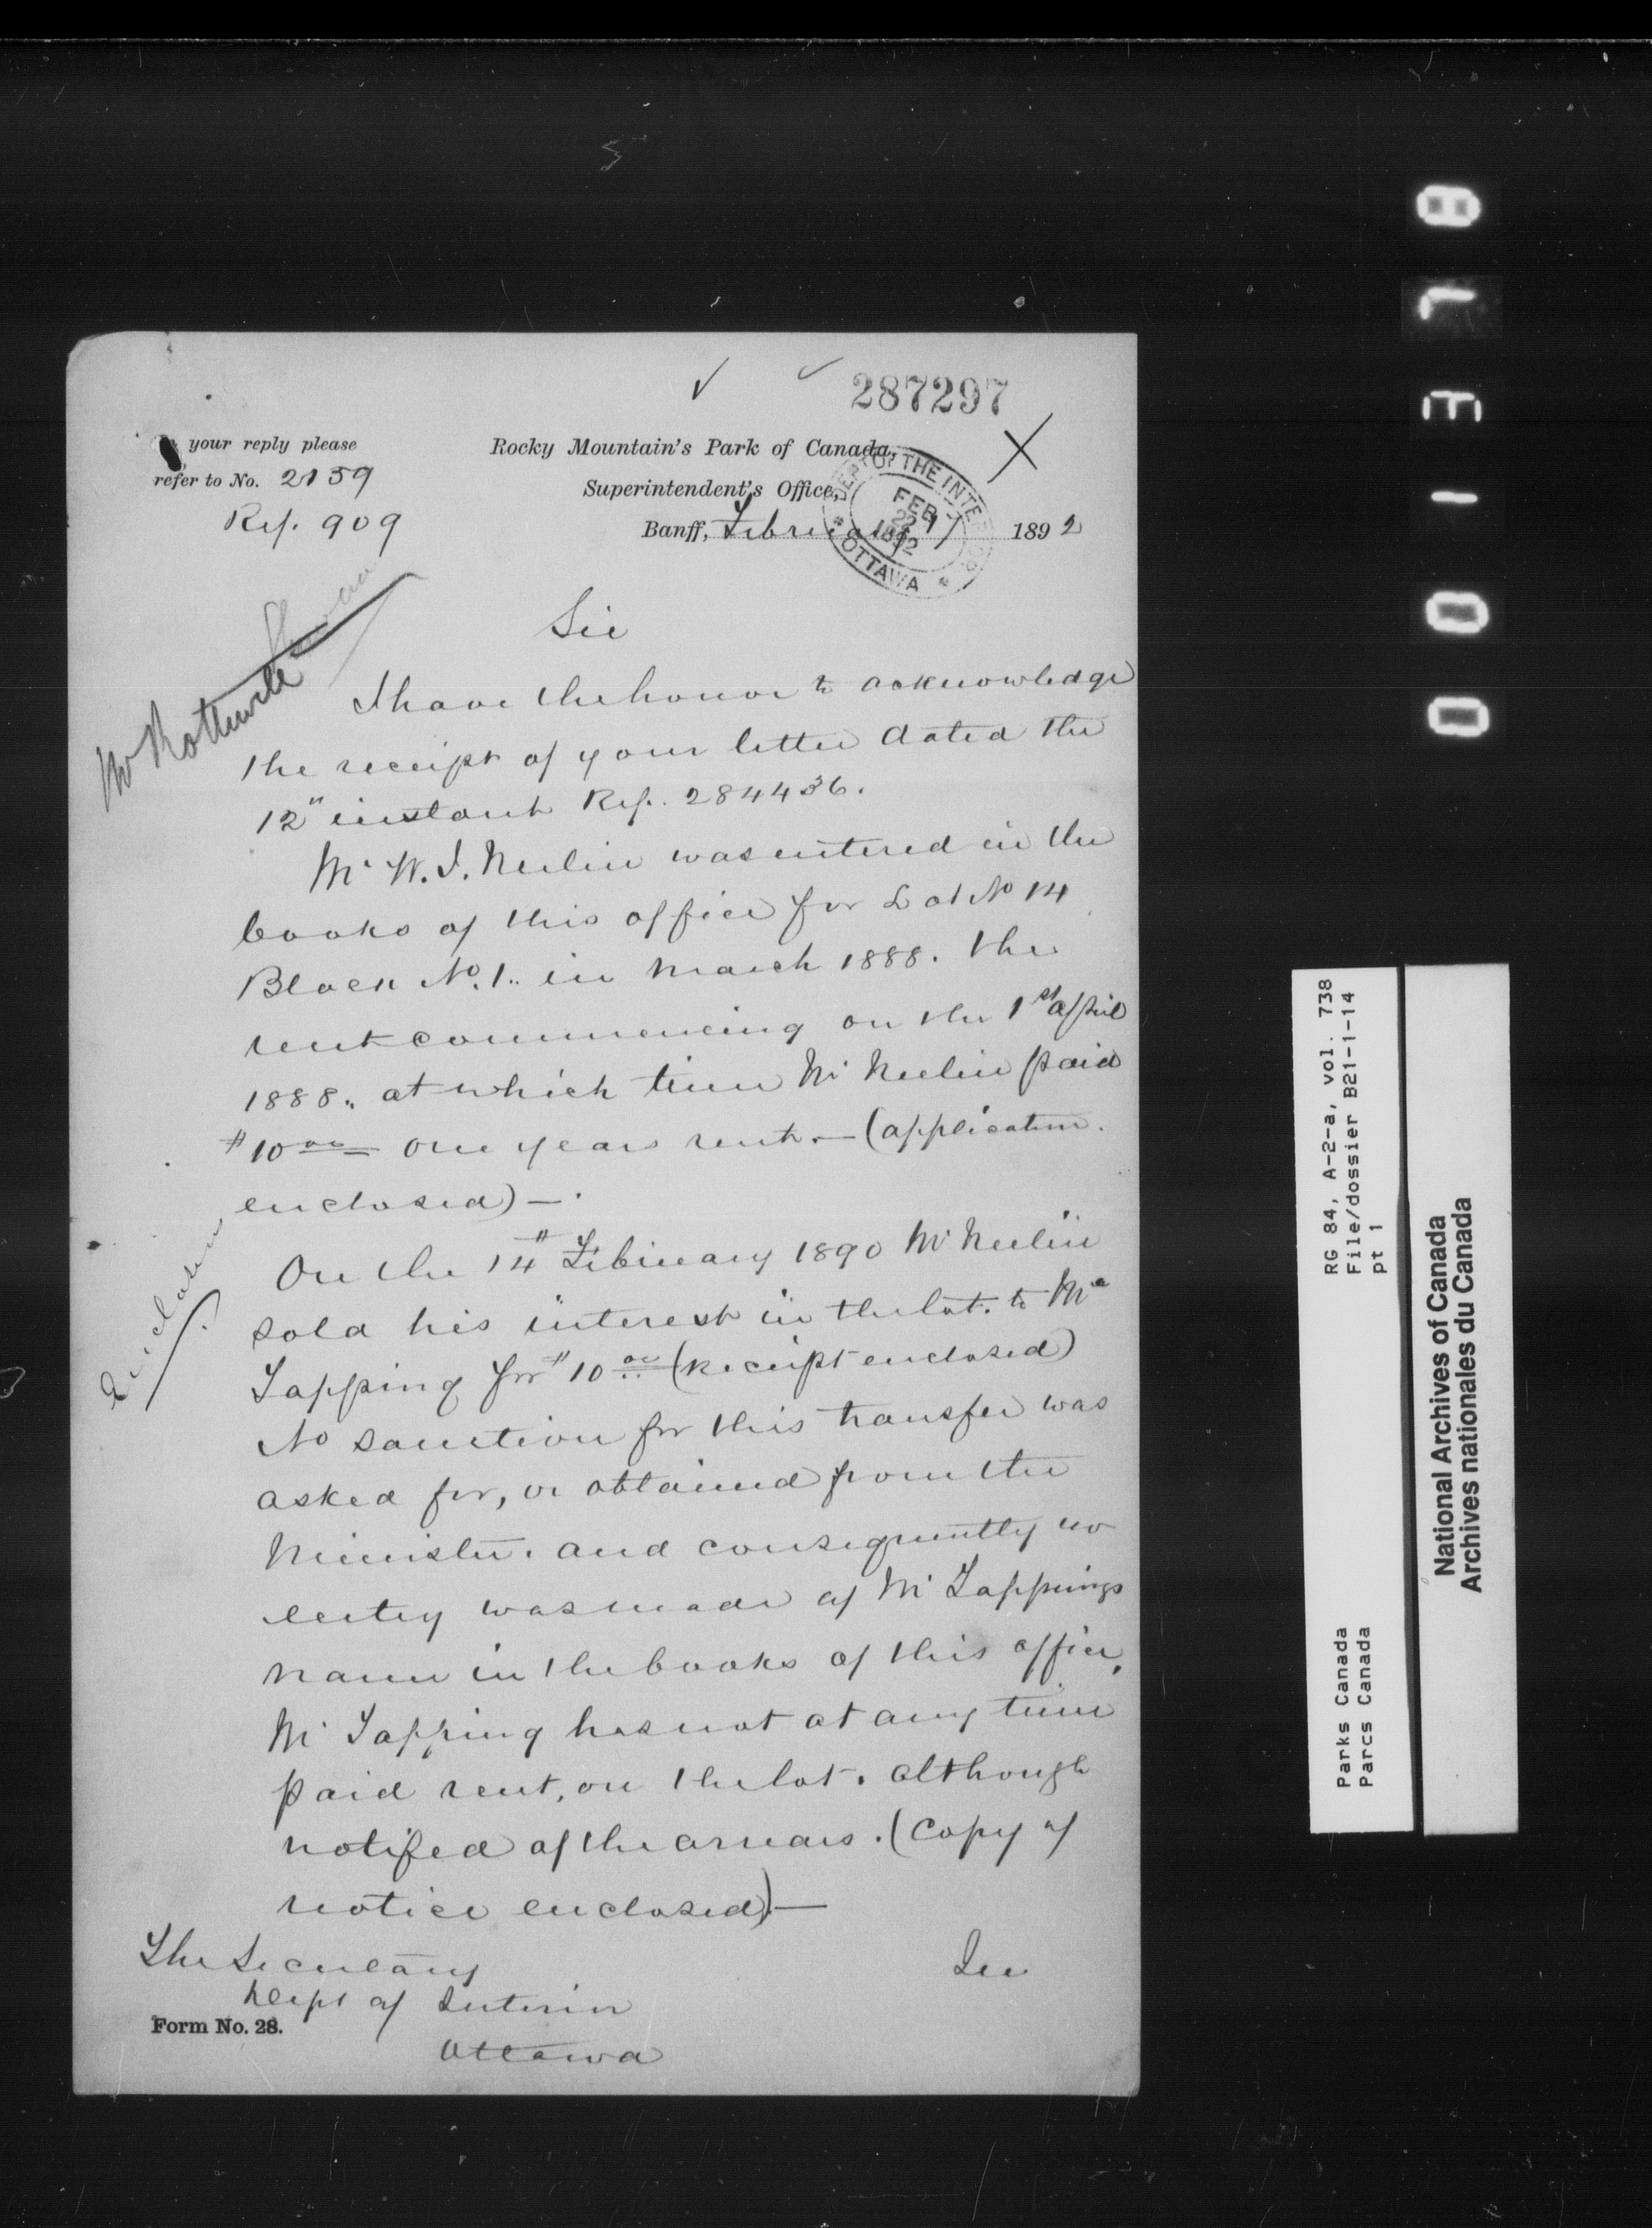 287297
your reply please
refer to No. 2159
Ref. 909
Rocky Mountain's Park of Canada,
Superintendent's Office,
Banff, February 17 1892
DEPT OF THE INTERIOR
FEB 22 1892
OTTAWA
Sir
I have the honor to acknowledge
the receipt of your letter dated the
12" instant Ref. 284436.
Mr W. J. Neelin was entered in the
books of this office for Lot No 14
Block No. 1. in March 1888. the
rent commencing on the 1st April
1888. at which time Mr Neelin paid
$10 00 one years rent. — (application
enclosed) —.
On the 14th February 1890 Mr Neelin
sold his interest in the lot. to Mr
Tapping for $10 00 (Receipt enclosed)
No sanction for this transfer was
asked for, or obtained from the
Minister. and consequently no
entry was made of Mr Tappings
name in the books of this office,
Mr Tapping has not at any time
paid rent, on the lot. although
notified of the arrears. (Copy of
notice enclosed) —
The Secretary
Dept of Interior
Ottawa
Form No. 28.
RG 84, A-2-a, vol. 738
File/dossier B21-1-14
pt 1
Parks Canada
Parcs Canada
National Archives of Canada
Archives nationales du Canada